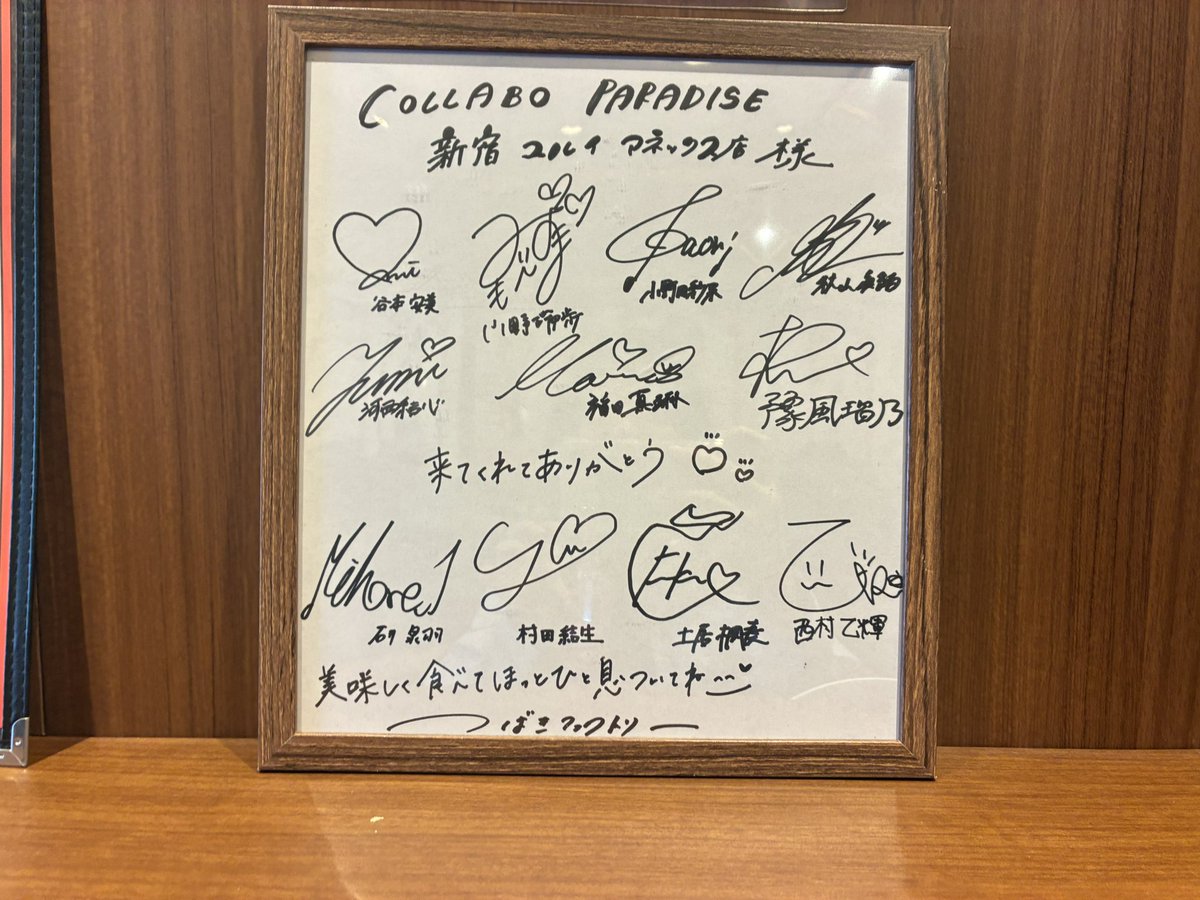 COLLABO PARADISE
新宿 ユルイ アネックス店 様
Ami
谷本安美
小野瑞歩
Saori
小野田紗栞
秋山眞緒
Yumi
河西結心
福田真琳
豫風瑠乃
来てくれてありがとう
Mihane
石井泉羽
Yu
村田結生
土居楓奏
西村乙輝
美味しく食べてほっとひと息ついてね
つばきファクトリー